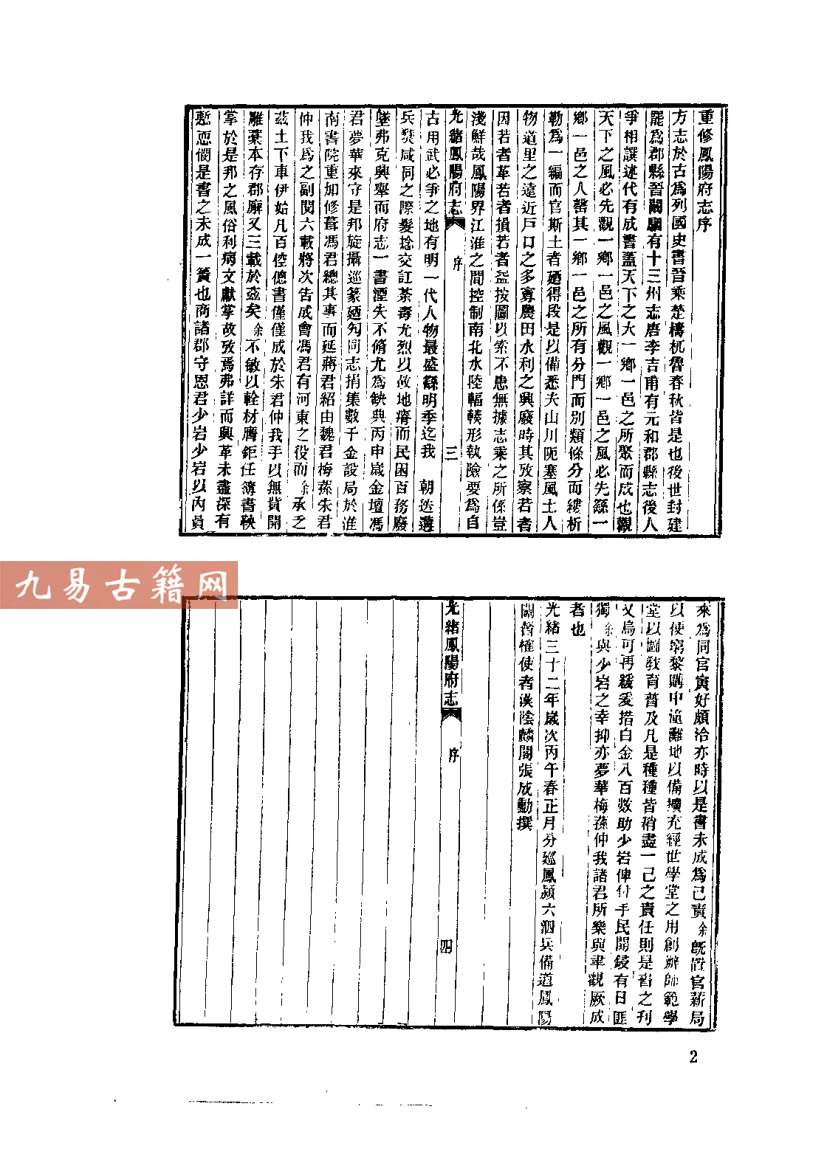 重修鳳陽府志序
方志於古爲列國史書晉乘楚檮杌魯春秋皆是也後世封建
罷爲郡縣晉闞駰有十三州志唐李吉甫有元和郡縣志後人
爭相譔述代有成書蓋天下之大一鄉一邑之所聚而成也觀
天下之風必先觀一鄉一邑之風觀一鄉一邑之風必先繇一
鄉一邑之人罄其一鄉一邑之所有分門而別類條分而縷析
勒爲一編而官斯土者廼得段是以備悉夫山川阨塞風土人
物道里之遠近戶口之多寡農田水利之興廢時其攷察若者
因若者革若者損若者益按圖以索不患無據志乘之所係豈
淺鮮哉鳳陽界江淮之間控制南北水陸輻輳形執險要爲自
光緒鳳陽府志 序 三
古用武必爭之地有明一代人物最盛繇明季迄我 朝迭遘
兵燹咸同之際髮捻交訌荼毒尤烈以故地瘠而民困百務廢
墜弗克興舉而府志一書湮失不脩尤爲缺典丙申歲金壇馮
君夢華來守是邦旋攝巡篆廼匄同志捐集數千金設局於淮
南書院重加修葺馮君總其事而延蔣君紹由魏君梅蓀朱君
仲我爲之副閱六載將次告成會馮君有河東之役而余承乏
茲土下車伊始凡百倥傯書僅僅成於朱君仲我手以無貲開
雕葉本存郡廨又三載於茲矣余不敏以輇材膺鉅任簿書鞅
掌於是邦之風俗利病文獻掌故攷焉弗詳而興革未盡深有
慙恧閔是書之未成一簣也商諸郡守恩君少岩少岩以內員
來爲同官寅好頗洽亦時以是書未成爲己責余旣置官薪局
以便窮黎購中 灘地以備擴充經世學堂之用創辦師範學
堂以圖敎育普及凡是種種皆稍盡一己之責任則是書之刊
又烏可再緩爰措白金八百數助少岩俾付手民開鋟有日匪
獨余與少岩之幸抑亦夢華梅蓀仲我諸君所樂與聿觀厥成
者也
光緒三十二年歲次丙午春正月分巡鳳潁六泗兵備道鳳陽
關督榷使者漢陰麟閣張成勳撰
光緒鳳陽府志 序 四
2
九易古籍网